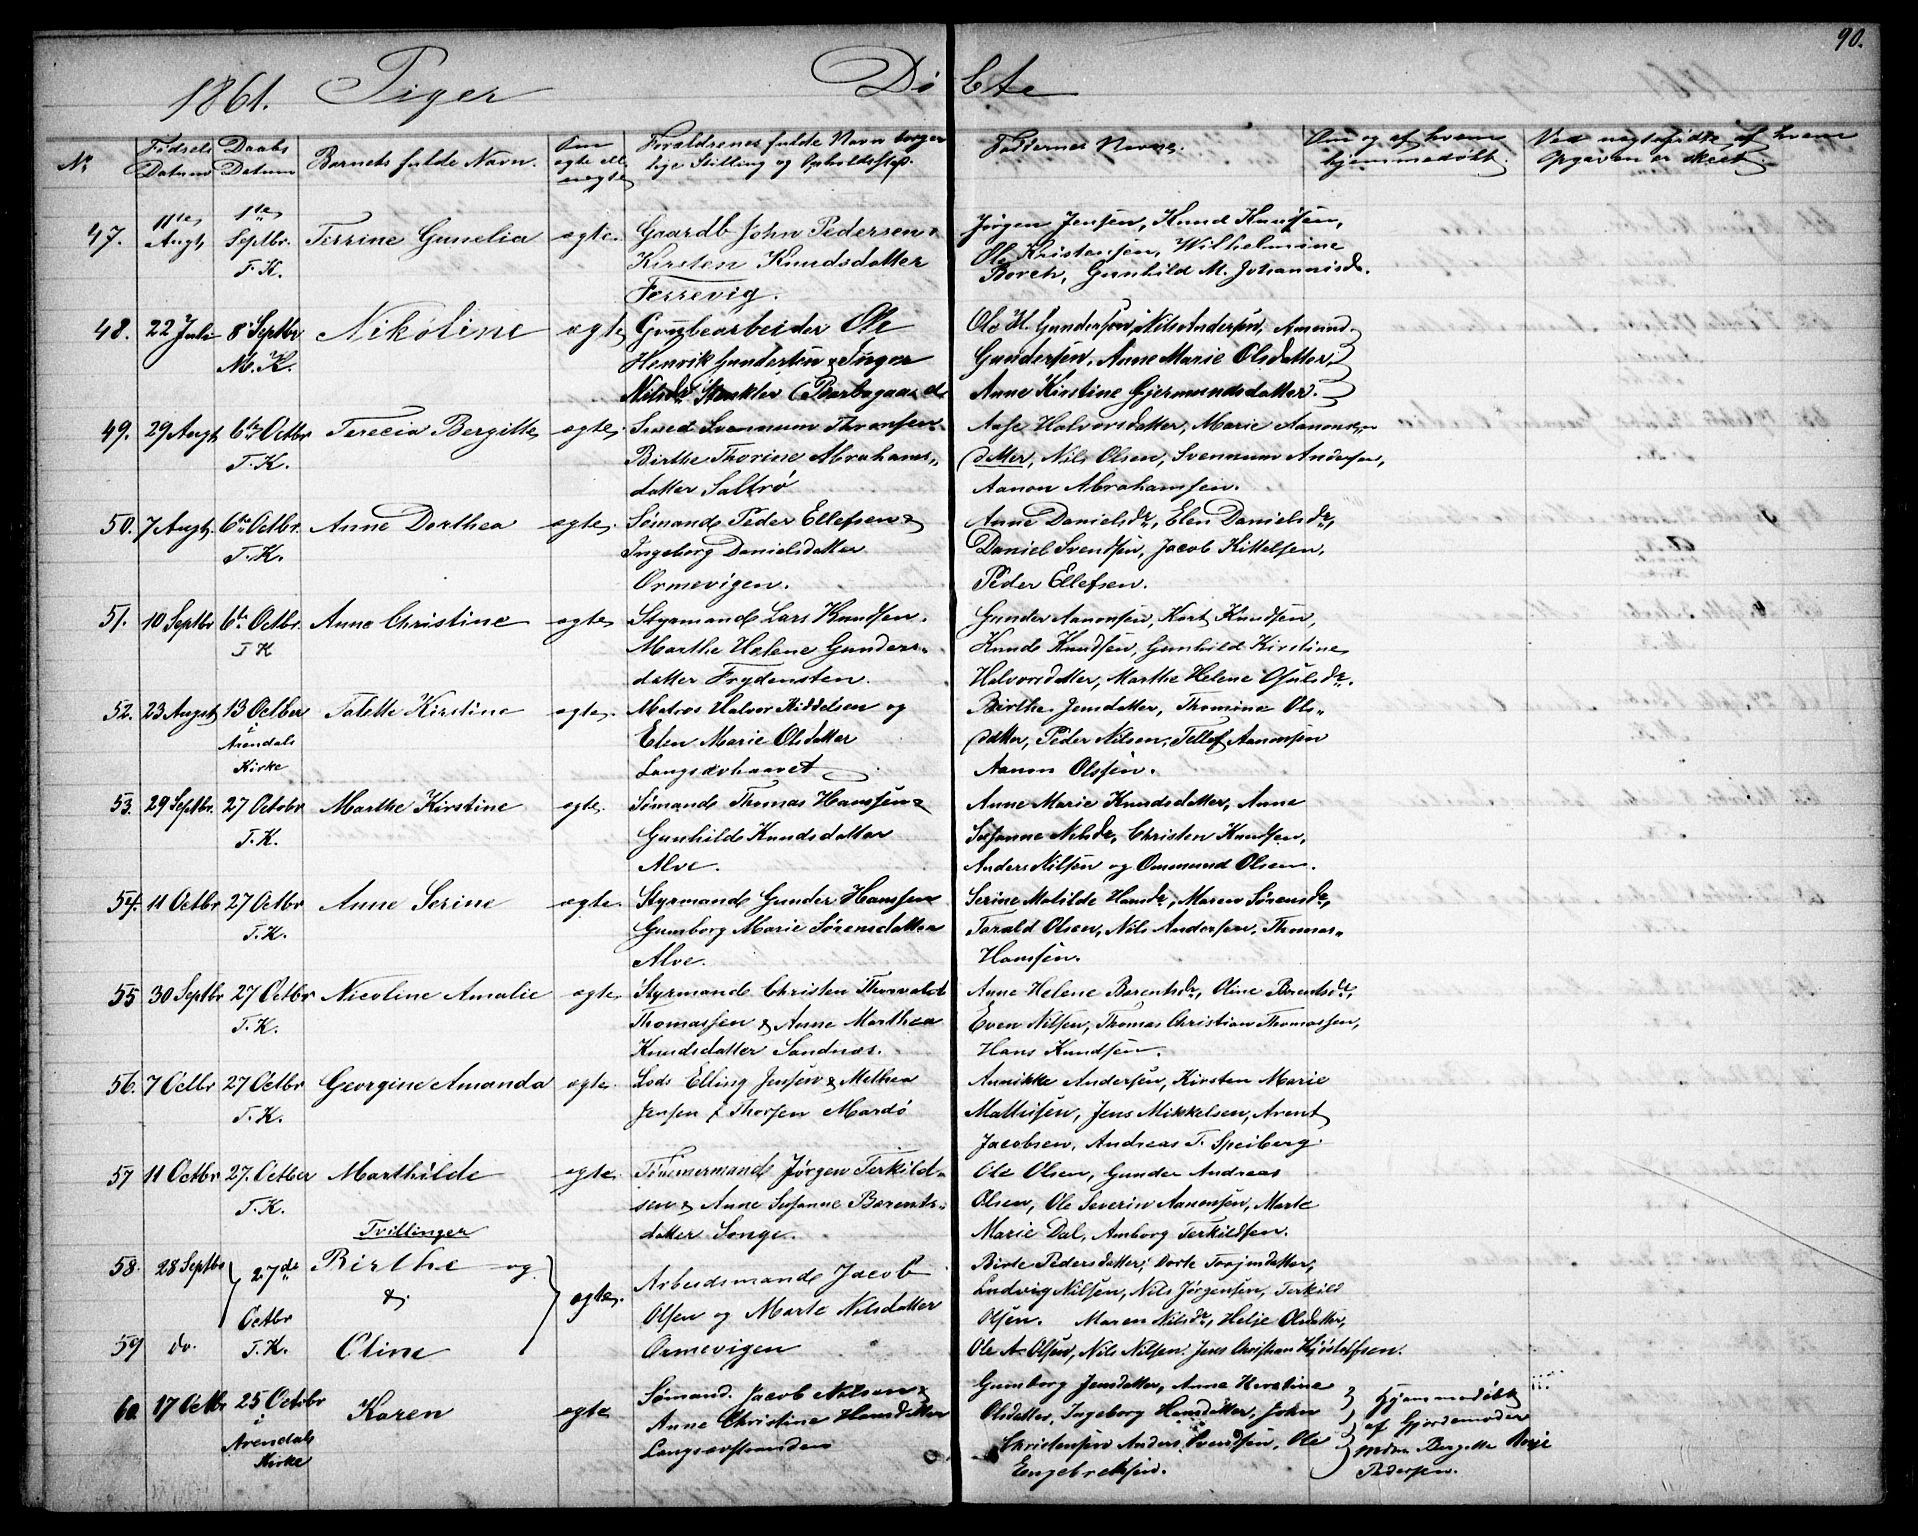 90.
1861. Piger Døbte
No Fødsels Datum Daabs Datum Barnets fulde Navn. Om ægte ell. uægte Forældrenes fulde Navn borgerlige Stilling og Opholdssted. Faddernes Navne. Om og af hvem hjemmedøbt. Ved uægtefødte, af hvem Opgaven er skeet.
47. 11te Augt, 1ste Septbr. T. K. Terrine Gunelia ægte.
Gaardb John Pedersen &
Kirsten Knudsdatter
Ferrevig.
Jørgen Jensen, Knud Knudsen,
Ole Kristensen, Wilhelmine
Borch, Gunhild M. Johannisd.
48. 22 Juli 8 Septbr M. K. Nikoline ægte
Grubearbeider Ole
Henrik Gundersen & Inger
Nilsdr Strakler (Barbogaard
Ole H. Gundersen, Nils Andersen, Amund
Gundersen, Anne Marie Olsdatter,
Anne Kirstine Gjermundsdatter.
49. 29 Augt 6te Octbr T. K. Terecia Bergitte ægte.
Smed Svennum Thronsen
Birthe Thorine Abrahams-
datter Saltrø
Aase Halvorsdatter, Marie Aanons-
datter, Nils Olsen, Svennum Andersen,
Aanon Abrahamsen.
50. 7 Augt. 6te Octbr. T. K. Anne Dorthea ægte.
Sømand Peder Ellefsen &
Ingeborg Danielsdatter
Ormevigen.
Anne Danielsdr, Elen Danielsdr,
Daniel Svendsen, Jacob Kittelsen,
Peder Ellefsen.
51. 10 Septbr 6te Octbr. T K Anne Christine ægte
Styrmand Lars Knudsen.
Marthe Helene Gunders-
datter Frydensten.
Gunder Aanonsen, Kort Knudsen,
Knud Knudsen, Gunhild Kirstine
Halvorsdatter, Marthe Helene Osulsdr.
52. 23 Augst 13 Octber i Arendals Kirke Talette Kirstine ægte.
Matros Halvor Kiddelsen og
Elen Marie Olsdatter
Langsævhaavet
Birthe Jensdatter, Thomine Ols-
datter, Peder Nilsen, Tellef Aanonsen
Aanon Olssen.
53. 29 Septbr. 27 Octobr T. K. Marthe Kirstine ægte.
Sømand Thomas Hanssen &
Gunhilde Knudsdatter
Alve.
Anne Marie Knudsdatter, Anne
Susanne Nilsdr, Christen Knudsen,
Anders Nilsen og Ommund Olsen.
54. 11 Octbr 27 Octbr T. K. Anne Serine ægte.
Styrmand Gunder Hanssen
Gumborg Marie Sørensdatter
Alve.
Serine Matilde Hansdr, Maren Sørensdr,
Torald Olsen, Nils Andersen, Thomas
Hansen.
55 30 Septbr 27 Octbr T. K. Nicoline Amalie ægte
Styrmand Christen Thorvald
Thomassen & Anne Marthea
Knudsdatter Sandnæs.
Anne Helene Barentsdr, Oline Berentsdr,
Even Nilsen, Thomas Christian Thomassen,
Hans Knudsen.
56. 7 Octbr 27 Octbr T. K. Georgine Amanda ægte.
Lods Elling Jensen & Methea
Jensen f Thorsen Mardø
Annikke Andersen, Kirsten Marie
Mathisen, Jens Mikkelsen, Arent
Jacobsen, Andreas T. Speiberg.
57 11 Octbr 27. Octber T. K. Marthilde ægte.
Tømmermand Jørgen Terkild-
sen & Anne Susanne Barents-
datter Songe.
Ole Olsen, Gunder Andreas
Olsen, Ole Severin Aanonsen, Marte
Marie Dal, Amborg Terkildsen.
Tvillinger
58. 28 Septbr 27de Octbr T. K. Birthe og ægte.
&
59 do. Oline
Arbeidsmand Jacob
Olsen og Marte Nilsdatter
Ormevigen
Birte Pedersdatter, Dorte Torjusdatter,
Ludvig Nilsen, Nils Jørgensen, Terkild
Olsen. Maren Nilsdr, Helje Olsdatter,
Ole A. Olsen, Nils Nilsen, Jens Christian Kristoffsen.
60 17 Octbr 25 Octobr i Arendals Kirke Karen ægte
Sømand. Jacob Nilsen &
Anne Christine Hansdatter
Langsævstranden
Gumborg Jensdatter, Anne Kirstine
Olsdatter, Ingeborg Hansdatter, John
Christensen Anders Svendsen, Ole
Engebretsen.
Hjemmedøbt
af Gjordemoder
Mdm Bergitte
Pedersen.